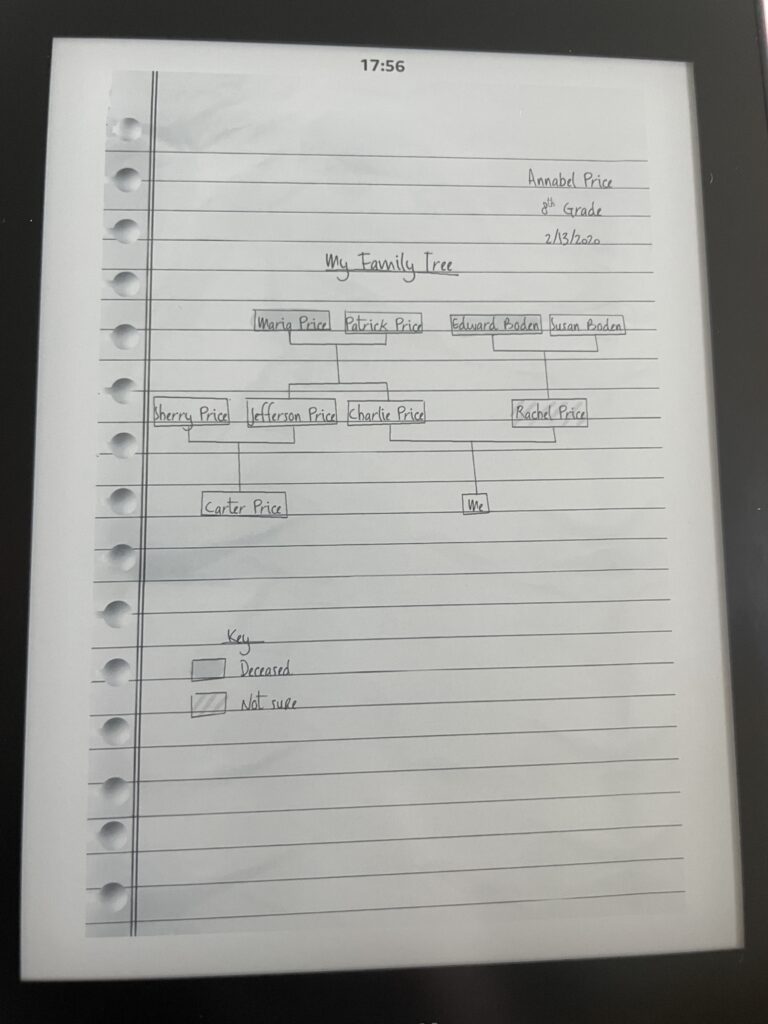 17:56
Annabel Price
8th Grade
2/13/2020
My Family Tree
Maria Price Patrick Price Edward Boden Susan Boden
Sherry Price Jefferson Price Charlie Price Rachel Price
Carter Price Me
Key
Deceased
Not sure